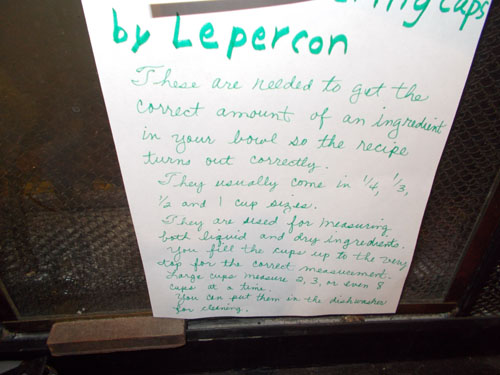 Cups
by Lepercon
These are needed to get the
correct amount of an ingredient
in your bowl so the recipe
turns out correctly.
They usually come in 1/4, 1/3,
1/2 and 1 cup sizes.
They are used for measuring
both liquid and dry ingredients.
You fill the cups up to the very
top for the correct measurement.
Large cups measure 2, 3, or even 8
cups at a time.
You can put them in the dishwasher
for cleaning.